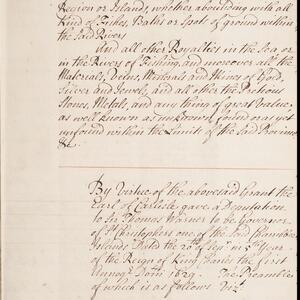 Region or Islands, whether abounding with all
Kind of Fishes, Baths or Spots of ground within
the said Rivers
And all other Royalties in the Sea or
in the Rivers of Fishing, and moreover all the
Materials, Veins, Minerals and things of Gold,
Silver and Jewels, and all other the Pretious
Stones, Metals, and any thing of great Value,
as well known as unknown, found or as yet
unfound within the Limits of the said Province
&c.
By Virtue of the abovesaid Grant the
Earl of Carlisle gave a Deputation
to Sr. Thomas Warner to be Governor
of St. Christophers one of the said Caribbee
Islands Dated the 20th Sept. in 5th Year
of the Reign of King Charles the first
Annoq Dom 1629. The Preamble
of which is as follows Vizt.